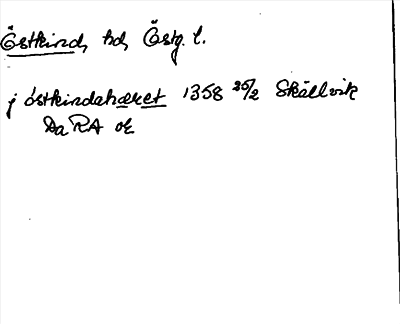 Östkind, hd, Östg. l.
j østkindahæret 1358 25/2 Skällvik
DaRA oE